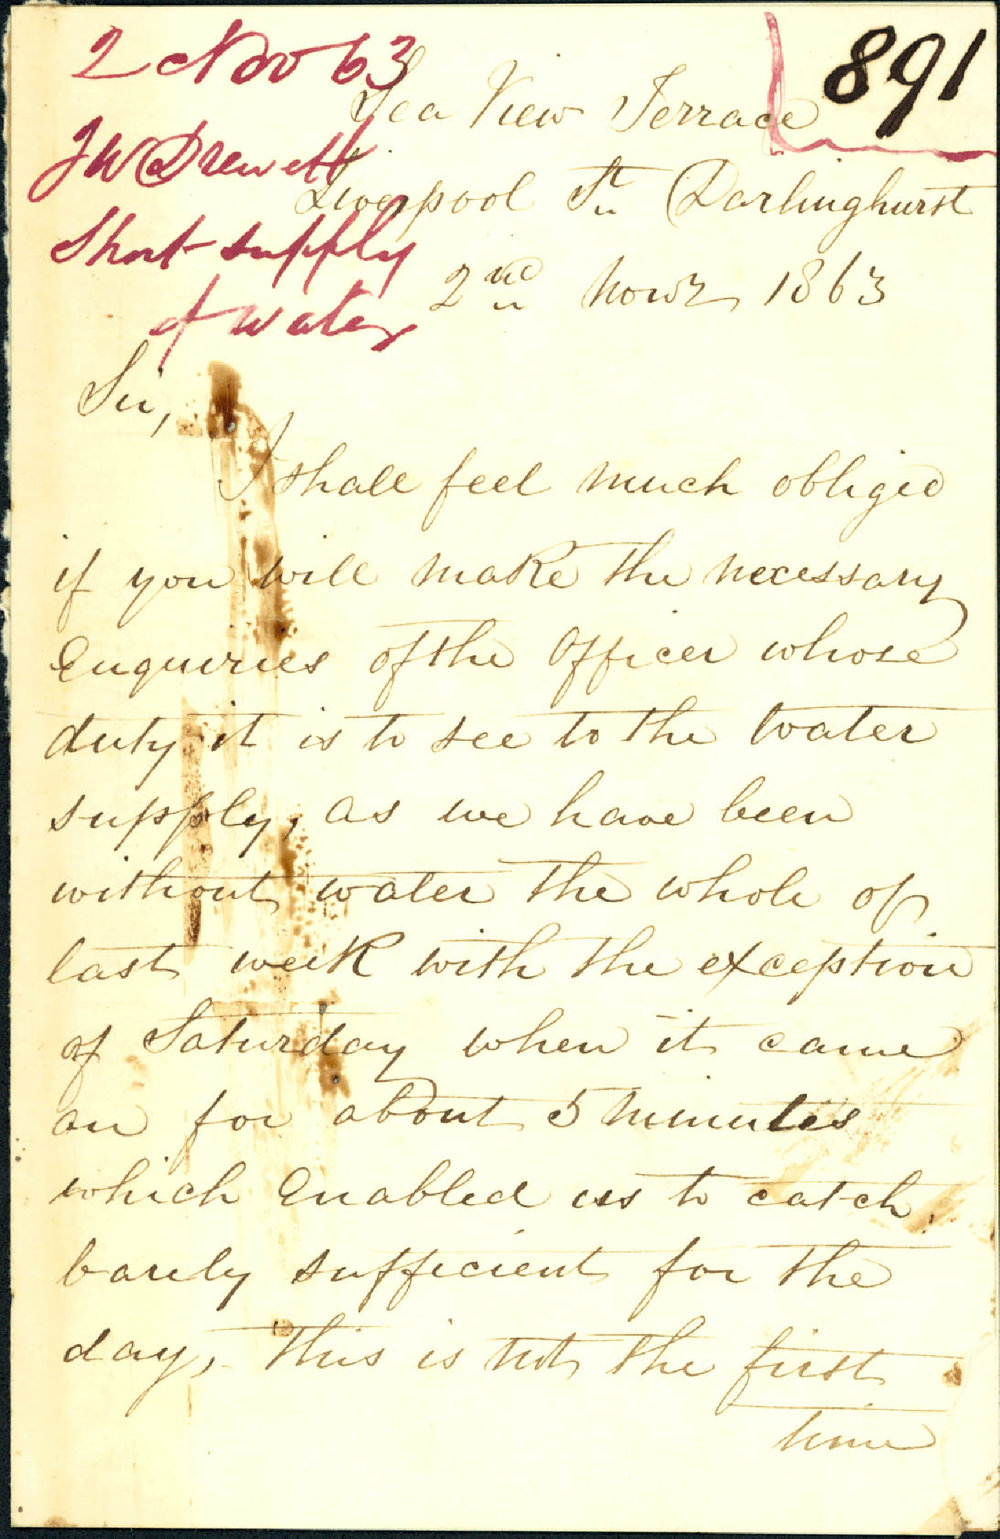 2 Nov 63
891
J W Drewett
Short supply
of water
Sea View Terrace
Liverpool St Darlinghurst
2nd Novr 1863
Sir,
I shall feel much obliged
if you will make the necessary
Enquiries of the Officer whose
duty it is to see to the Water
supply, as we have been
without water the whole of
last week with the exception
of Saturday when it came
on for about 5 minutes
which Enabled us to catch
barely sufficient for the
day, this is not the first
time